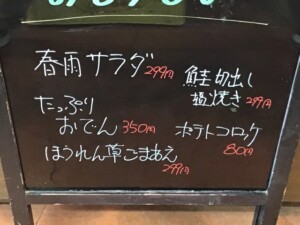 春雨サラダ 299円
鮭切出し
塩焼き 299円
たっぷり
おでん 350円
ポテトコロッケ
80円
ほうれん草ごまあえ
299円